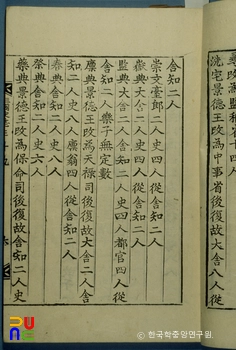 舍知二人
崇文臺郎二人史四人從舍知二人
嶽典大舍二人史四人從舍知二人
監典大舍二人舍知二人史四人都官四人從
舍知二人樂子無定數
廩典景德王改爲天祿司後復故大舍二人舍
知二人史八人廩翁四人從舍知二人
春典舍知二人史八人
祭典舍知二人史六人
藥典景德王改爲保命司後復故舍知二人史
洗宅景德王改爲中事省後復故大舍八人從
© 한국학중앙연구원